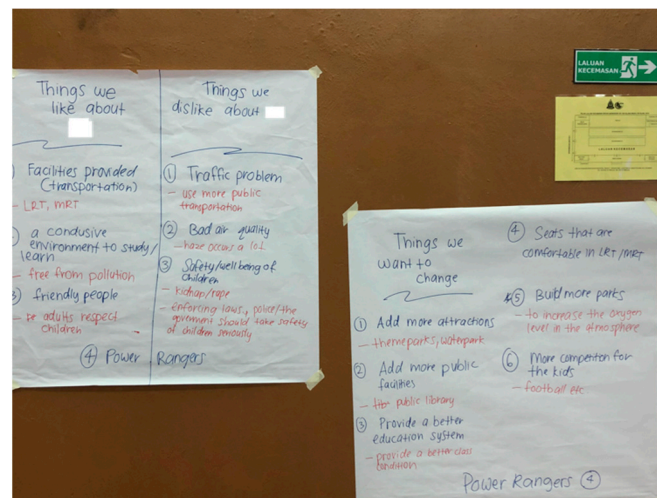 Things we
like about
① Facilities provided
(transportation)
- LRT, MRT
a condusive
environment to study/
learn
- free from pollution
friendly people
- adults respect
children
Things we
dislike about
① Traffic problem
- use more public
transportation
② Bad air quality
- haze occurs a lot
③ Safety/wellbeing of
children
- kidnap/rape
- enforcing laws, police/the
should take safety
of children seriously
④ Power Rangers
Things we
want to
change
① Add more attractions
- themeparks, waterpark
② Add more public
facilities
- public library
③ Provide a better
education system
- provide a better class
condition
④ Seats that are
comfortable in LRT/MRT
⑤ Build more parks
- to increase the oxygen
level in the atmosphere
⑥ More for
the kids
- football etc.
Power Rangers ④
LALUAN
KECEMASAN